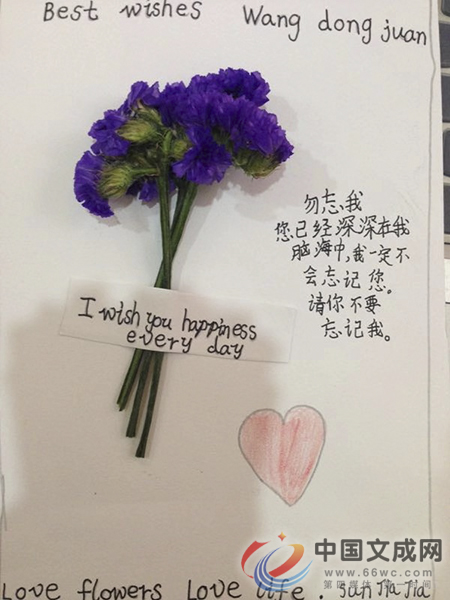 Best wishes Wang dong juan
勿忘我
您已经深深在我
脑海中,我一定不
会忘记您。
请你不要
忘记我。
I wish you happiness
every day
Love flowers Love life . San Jia Jia
中国文成网
www.66wc.com
第四媒体 第一时间